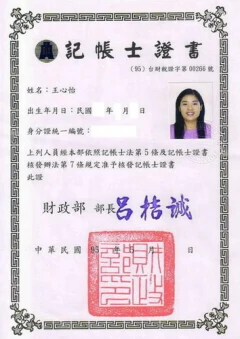 記帳士證書
(95)台財稅證字第00266號
姓名：王心怡
出生年月日：民國 年 月 日
身分證統一編號：
上列人員經本部依照記帳士法第5條及記帳士證書
核發辦法第7條規定准予核發記帳士證書
此證
財政部 部長呂桔誠
中華民國 95 年 月 日